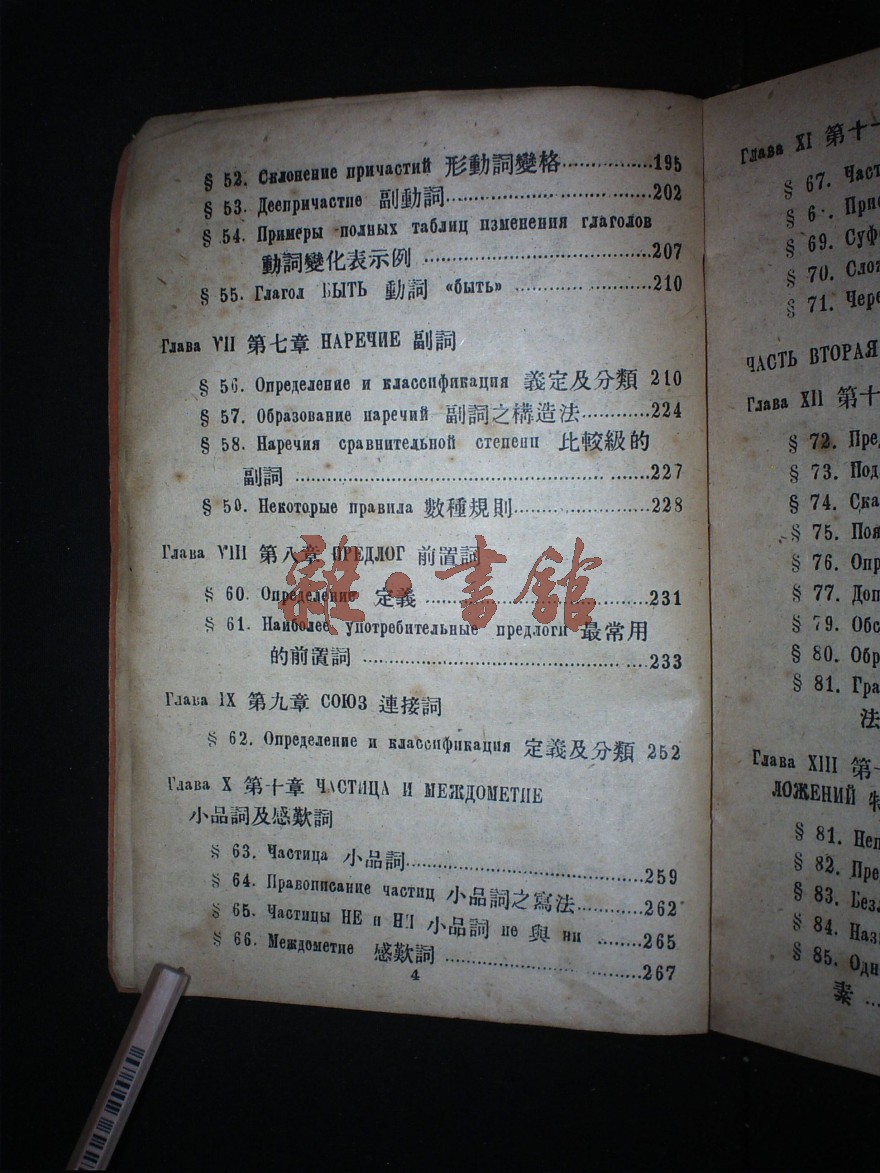 § 52. Склонение причастий 形動詞變格..............195
§ 53. Деепричастие 副動詞..............202
§ 54. Примеры полных таблиц изменения глаголов
動詞變化表示例 ..............207
§ 55. Глагол БЫТЬ 動詞 «быть» ..............210
Глава VII 第七章 НАРЕЧИЕ 副詞
§ 56. Определение и классификация 義定及分類 210
§ 57. Образование наречий 副詞之構造法............224
§ 58. Наречия сравнительной степени 比較級的
副詞 ..............227
§ 59. Некоторые правила 數種規則..............228
Глава VIII 第八章 ПРЕДЛОГ 前置詞
§ 60. Определение 定義 ..............231
§ 61. Наиболее употребительные предлоги 最常用
的前置詞 ..............233
Глава IX 第九章 СОЮЗ 連接詞
§ 62. Определение и классификация 定義及分類 252
Глава X 第十章 ЧАСТИЦА И МЕЖДОМЕТИЕ
小品詞及感歎詞
§ 63. Частица 小品詞..............259
§ 64. Правописание частиц 小品詞之寫法............262
§ 65. Частицы НЕ и НИ 小品詞 не 與 ни ........265
§ 66. Междометие 感歎詞 ..............267
4
雜·書館
Глава XI 第十一
§ 67. Част
§ 6 . При
§ 69. Суф
§ 70. Сло
§ 71. Чере
ЧАСТЬ ВТОРАЯ
Глава XII 第十
§ 72. Пред
§ 73. Под
§ 74. Ска
§ 75. Поя
§ 76. Опр
§ 77. Доп
§ 79. Обс
§ 80. Обр
§ 81. Гра
法
Глава XIII 第
ЛОЖЕНИЙ 特
§ 81. Неп
§ 82. Пре
§ 83. Безл
§ 84. Наз
§ 85. Одн
素 ...